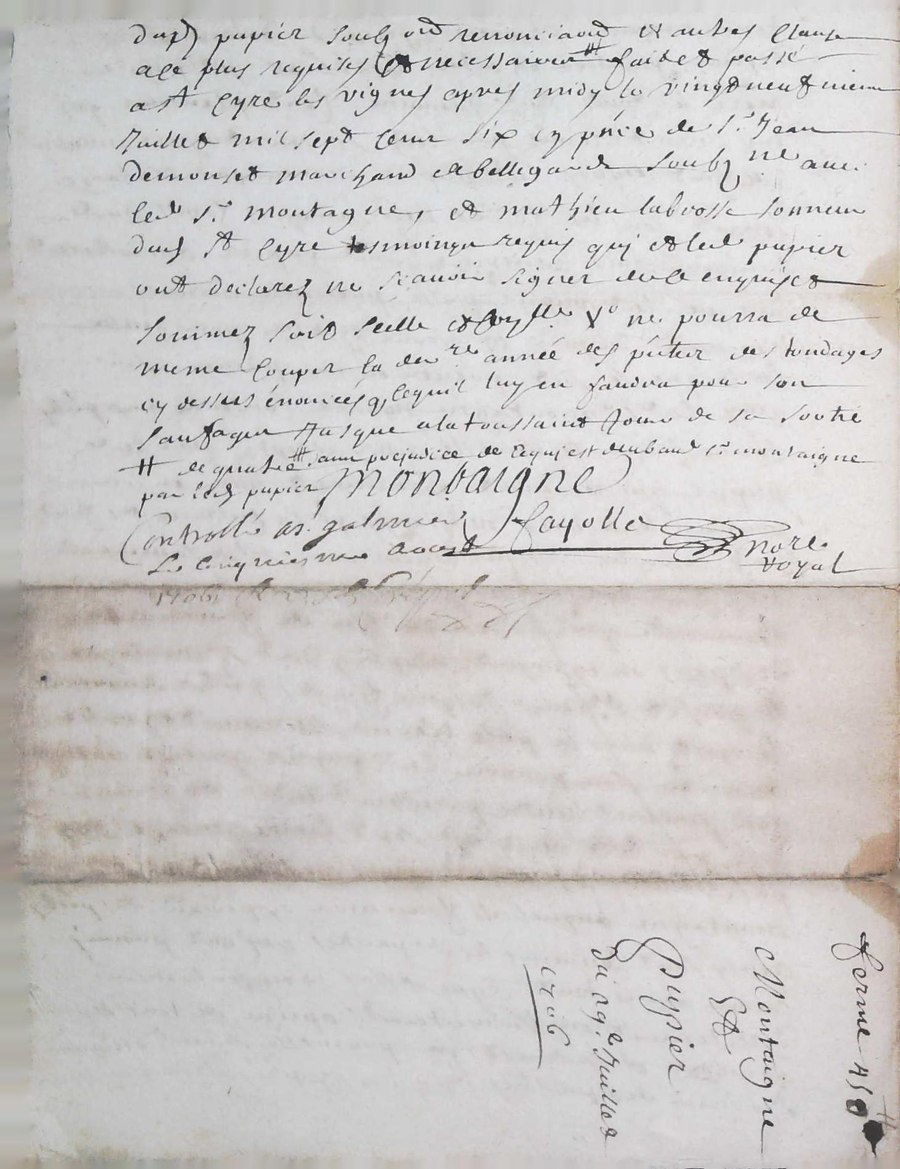 dud papier soubz renonciaon et autres clause
a ce plus requises et necessaires # fait et passé
a st Cyre les vignes apres midy le vingt neufvieme
Juillet mil sept cens six en pñce de sr Jean
demonset marchand de bellegarde soubz ne avec
led sr montagne, et mathieu labrosse sonneur
dud st Cyre tesmoings requis qui et led papier
ont declarez ne scavoir signer de ce enquis et
sommez soit scelle et ne pourra de
meme couper la dere année des des tondages
cy dessus énoncées que ce quil luy en faudra pour son
jusque a la toussaint Jour de sa sortie
# de quatre # sans prejudice de ce qui est deub aud sr montaigne
par led papier Montaigne
Controllé a st galmier fayolle nore
Le cinquiesme Aoust royal
1706
ferme 450
Montaigne
Et
Pupier
du 29e Juillet
1706